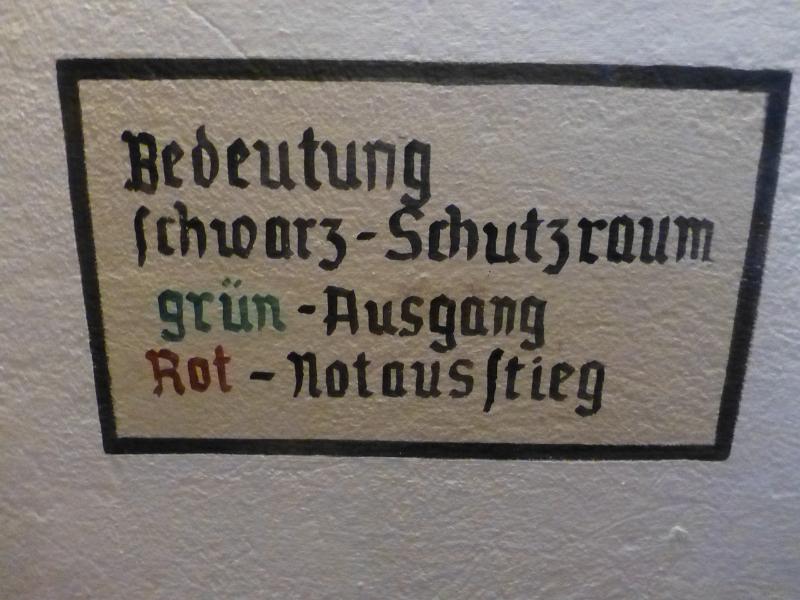 Bedeutung
ſchwarz-Schutzraum
grün-Ausgang
Rot-Notausſtieg